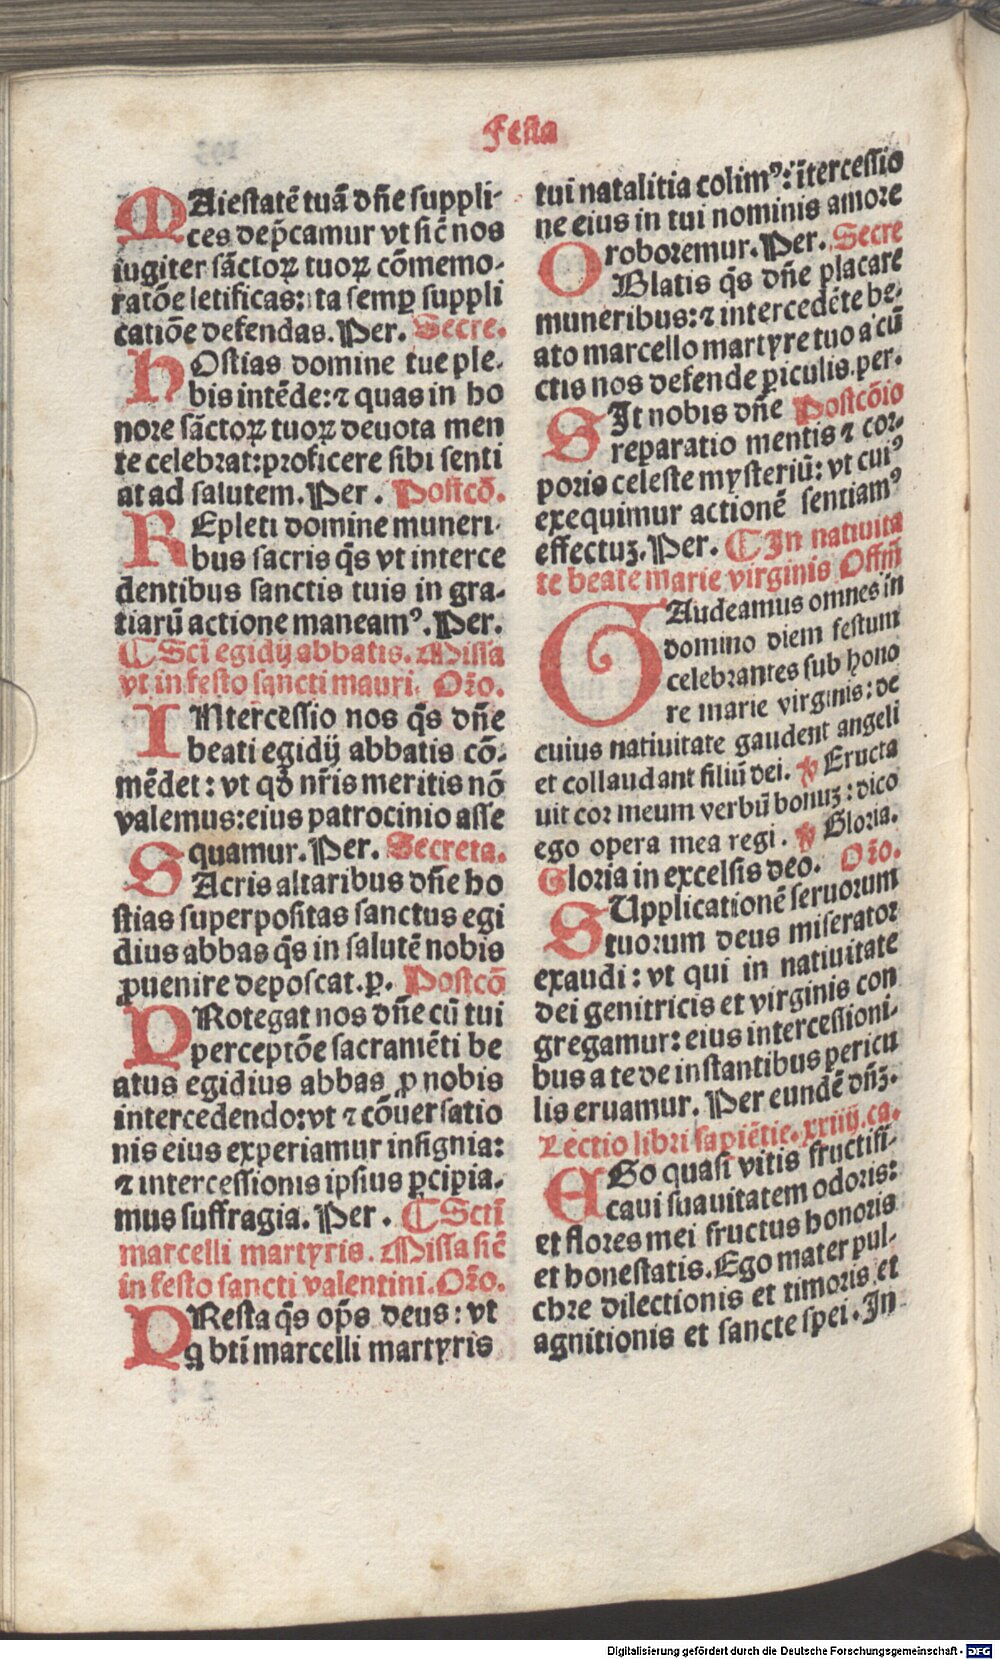 Festa
MAiestatē tuā dn̄e suppli-
ces dep̄camur vt sic̄ nos
iugiter sāctoꝝ tuoꝝ cōmemo-
ratōe letificas: ita semꝑ suppli
catiōe defendas. Per. Secre.
HOstias domine tue ple-
bis intēde: ⁊ quas in ho
nore sāctoꝝ tuoꝝ deuota men
te celebrat: proficere sibi senti
at ad salutem. Per. Postcō.
REpleti domine muneri-
bus sacris q̄s vt interce
dentibus sanctis tuis in gra-
tiarū actione maneamꝰ. Per.
¶ Scti egidij abbatis. Missa
vt in festo sancti mauri. Orō.
INtercessio nos q̄s dn̄e
beati egidij abbatis cō-
mēdet: vt qd̄ nr̄is meritis nō
valemus: eius patrocinio asse
quamur. Per. Secreta.
SAcris altaribus dn̄e ho
stias superpositas sanctus egi
dius abbas q̄s in salutē nobis
ꝓuenire deposcat. p. Postcō
PRotegat nos dn̄e cū tui
perceptōe sacramēti be
atus egidius abbas ꝓ nobis
intercedendo: vt ⁊ cōuersatio
nis eius experiamur insignia:
⁊ intercessionis ipsius ꝑcipia-
mus suffragia. Per. ¶ Scti
marcelli martyris. Missa sic̄
in festo sancti valentini. Orō.
PResta q̄s op̄s deus: vt
q bt̄i marcelli martyris
tui natalitia colimꝰ: ītercessio
ne eius in tui nominis amore
roboremur. Per. Secre
OBlatis q̄s dn̄e placare
muneribus: ⁊ intercedēte be-
ato marcello martyre tuo a cū
ctis nos defende ꝑiculis. per.
SIt nobis dn̄e Postcōio
reparatio mentis ⁊ cor-
poris celeste mysteriū: vt cuiꝰ
exequimur actionē sentiamꝰ
effectuꝫ. Per. ¶ In natiuita
te beate marie virginis Offm̄
GAudeamus omnes in
domino diem festum
celebrantes sub hono
re marie virginis: de
cuius natiuitate gaudent angeli
et collaudant filiū dei. ℣ Eructa
uit cor meum verbū bonuꝫ: dico
ego opera mea regi. ℣ Gloria.
Gloria in excelsis deo. Orō.
SUpplicationē seruorum
tuorum deus miserator
exaudi: vt qui in natiuitate
dei genitricis et virginis con
gregamur: eius intercessioni-
bus a te de instantibus pericu
lis eruamur. Per eundē dn̄ꝫ.
Lectio libri sapiētie. xxiiij. ca.
EGo quasi vitis fructifi-
caui suauitatem odoris:
et flores mei fructus honoris
et honestatis. Ego mater pul-
chre dilectionis et timoris et
agnitionis et sancte spei. In
Digitalisierung gefördert durch die Deutsche Forschungsgemeinschaft - DFG